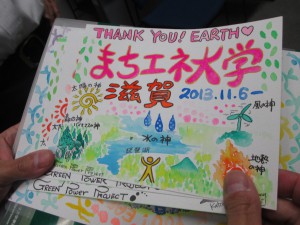 THANK YOU! EARTH♡
まちエネ大学
滋賀 2013.11.6―
太陽の神
風の神
水の神
琵琶湖
地熱の神
GREEN POWER PROJECT
GREEN POWER PROJECT